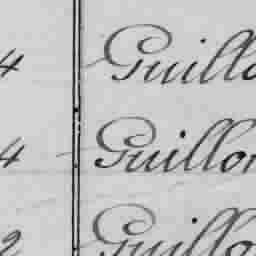 4 Guillo
4 Guillon
2 Guillo